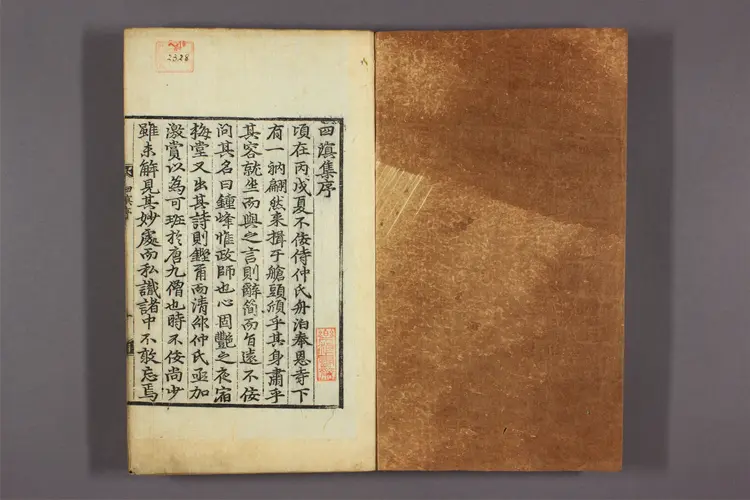 四溟集序
頃在丙戌夏不佞侍仲氏舟泊奉恩寺下
有一衲翩然来揖于艙頭頎乎其身肅乎
其容就坐而與之言則辭簡而旨遠不佞
問其名曰鐘峰惟政師也心固艷之夜宿
梅堂又出其詩則鏗爾而清邵仲氏亟加
激賞以爲可班於唐九僧也時不佞尚少
雖未解見其妙處而私識諸中不敢忘焉
2328